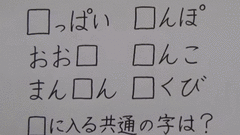 □っぱい □んぽ
おお□ □んこ
まん□ん □くび
□に入る共通の字は？